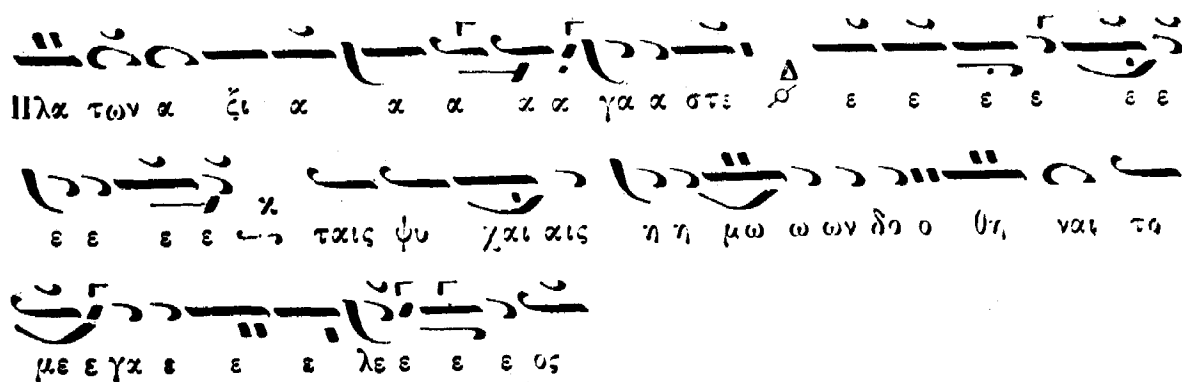 Πλα των α ξι α α α α α γα α στε Δ ε ε ε ε ε ε
ε ε ε ε ϰ ταις ψυ χαι αις η η μω ω ων δο ο θη ναι το
με ε γα ε ε ε λε ε ε ε ος